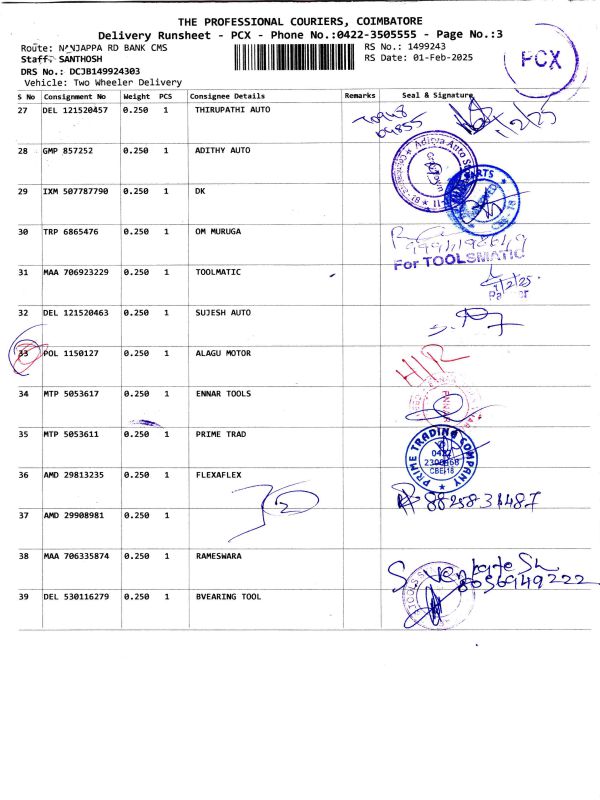 THE PROFESSIONAL COURIERS, COIMBATORE
Delivery Runsheet - PCX - Phone No.:0422-3505555 - Page No.:3
Route: NANJAPPA RD BANK CMS
RS No.: 1499243
Staff: SANTHOSH
RS Date: 01-Feb-2025
PCX
DRS No.: DCJB149924303
Vehicle: Two Wheeler Delivery
S No Consignment No Weight PCS Consignee Details Remarks Seal & Signature
27 DEL 121520457 0.250 1 THIRUPATHI AUTO
28 GMP 857252 0.250 1 ADITHY AUTO
Aditya Auto
29 IXM 507787790 0.250 1 DK
PARTS
CBE - 18
30 TRP 6865476 0.250 1 OM MURUGA
For TOOLSMATIC
31 MAA 706923229 0.250 1 TOOLMATIC
1/2/25
32 DEL 121520463 0.250 1 SUJESH AUTO
33 POL 1150127 0.250 1 ALAGU MOTOR
34 MTP 5053617 0.250 1 ENNAR TOOLS
35 MTP 5053611 0.250 1 PRIME TRAD
PRIME TRADING COMPANY
0422
CBE-18
36 AMD 29813235 0.250 1 FLEXAFLEX
37 AMD 29908981 0.250 1
38 MAA 706335874 0.250 1 RAMESWARA
S. Venkatesh
8056949222
39 DEL 530116279 0.250 1 BVEARING TOOL
TOOLS